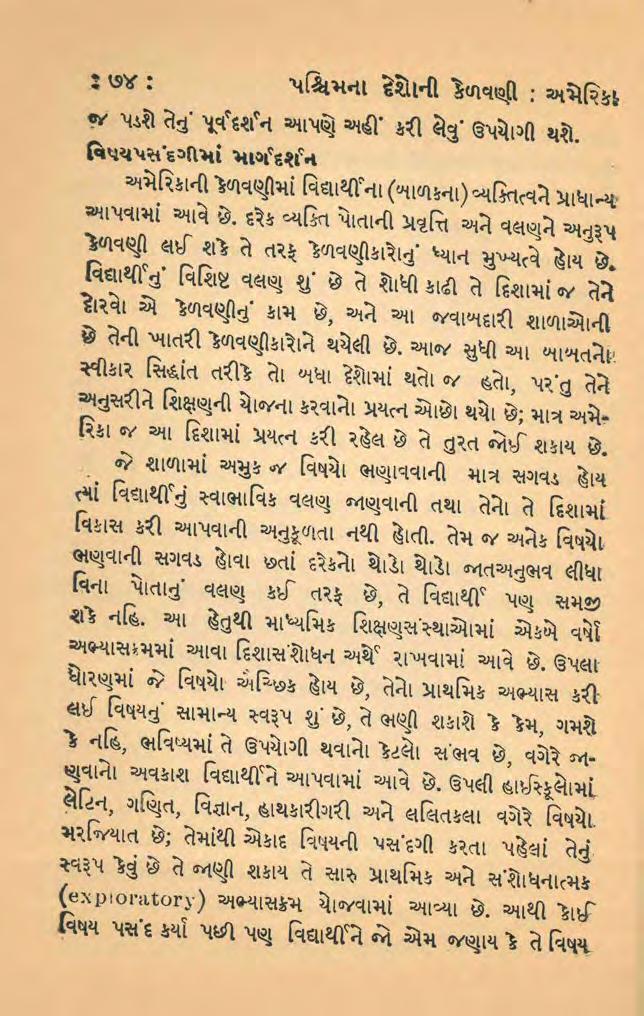 : ૭૪ : પશ્ચિમના દેશોની કેળવણી : અમેરિકા
જ પડશે તેનું પૂર્વદર્શન આપણે અહીં કરી લેવું ઉપયોગી થશે.
વિષયપસંદગીમાં માર્ગદર્શન
અમેરિકાની કેળવણીમાં વિદ્યાર્થીના (બાળકના) વ્યક્તિત્વને પ્રાધાન્ય
આપવામાં આવે છે. દરેક વ્યક્તિ પોતાની પ્રવૃત્તિ અને વલણને અનુરૂપ
કેળવણી લઈ શકે તે તરફ કેળવણીકારોનું ધ્યાન મુખ્યત્વે હોય છે.
વિદ્યાર્થીનું વિશિષ્ટ વલણ શું છે તે શોધી કાઢી તે દિશામાં જ તેને
દોરવો એ કેળવણીનું કામ છે, અને આ જવાબદારી શાળાઓની
છે તેની ખાતરી કેળવણીકારોને થયેલી છે. આજ સુધી આ બાબતનો
સ્વીકાર સિદ્ધાંત તરીકે તો બધા દેશોમાં થતો જ હતો, પરંતુ તેને
અનુસરીને શિક્ષણની યોજના કરવાનો પ્રયત્ન ઓછો થયો છે; માત્ર અમે-
રિકા જ આ દિશામાં પ્રયત્ન કરી રહેલ છે તે તુરત જોઈ શકાય છે.
જે શાળામાં અમુક જ વિષયો ભણાવવાની માત્ર સગવડ હોય
ત્યાં વિદ્યાર્થીનું સ્વાભાવિક વલણ જાણવાની તથા તેનો તે દિશામાં
વિકાસ કરી આપવાની અનુકૂળતા નથી હોતી. તેમ જ અનેક વિષયો
ભણવાની સગવડ હોવા છતાં દરેકનો થોડો થોડો જાતઅનુભવ લીધા
વિના પોતાનું વલણ કઈ તરફ છે, તે વિદ્યાર્થી પણ સમજી
શકે નહિ. આ હેતુથી માધ્યમિક શિક્ષણસંસ્થાઓમાં એકબે વર્ષો
અભ્યાસક્રમમાં આવા દિશાસંશોધન અર્થે રાખવામાં આવે છે. ઉપલા
ધોરણમાં જે વિષયો ઐચ્છિક હોય છે, તેનો પ્રાથમિક અભ્યાસ કરી
લઈ વિષયનું સામાન્ય સ્વરૂપ શું છે, તે ભણી શકાશે કે કેમ, ગમશે
કે નહિ, ભવિષ્યમાં તે ઉપયોગી થવાનો કેટલો સંભવ છે, વગેરે જા-
ણવાનો અવકાશ વિદ્યાર્થીને આપવામાં આવે છે. ઉપલી હાઈસ્કૂલોમાં
લેટિન, ગણિત, વિજ્ઞાન, હાથકારીગરી અને લલિતકલા વગેરે વિષયો
મરજિયાત છે; તેમાંથી એકાદ વિષયની પસંદગી કરતા પહેલાં તેનું
સ્વરૂપ કેવું છે તે જાણી શકાય તે સારુ પ્રાથમિક અને સંશોધનાત્મક
(exploratory) અભ્યાસક્રમ યોજવામાં આવ્યા છે. આથી કોઈ
વિષય પસંદ કર્યા પછી પણ વિદ્યાર્થીને જો એમ જણાય કે તે વિષય